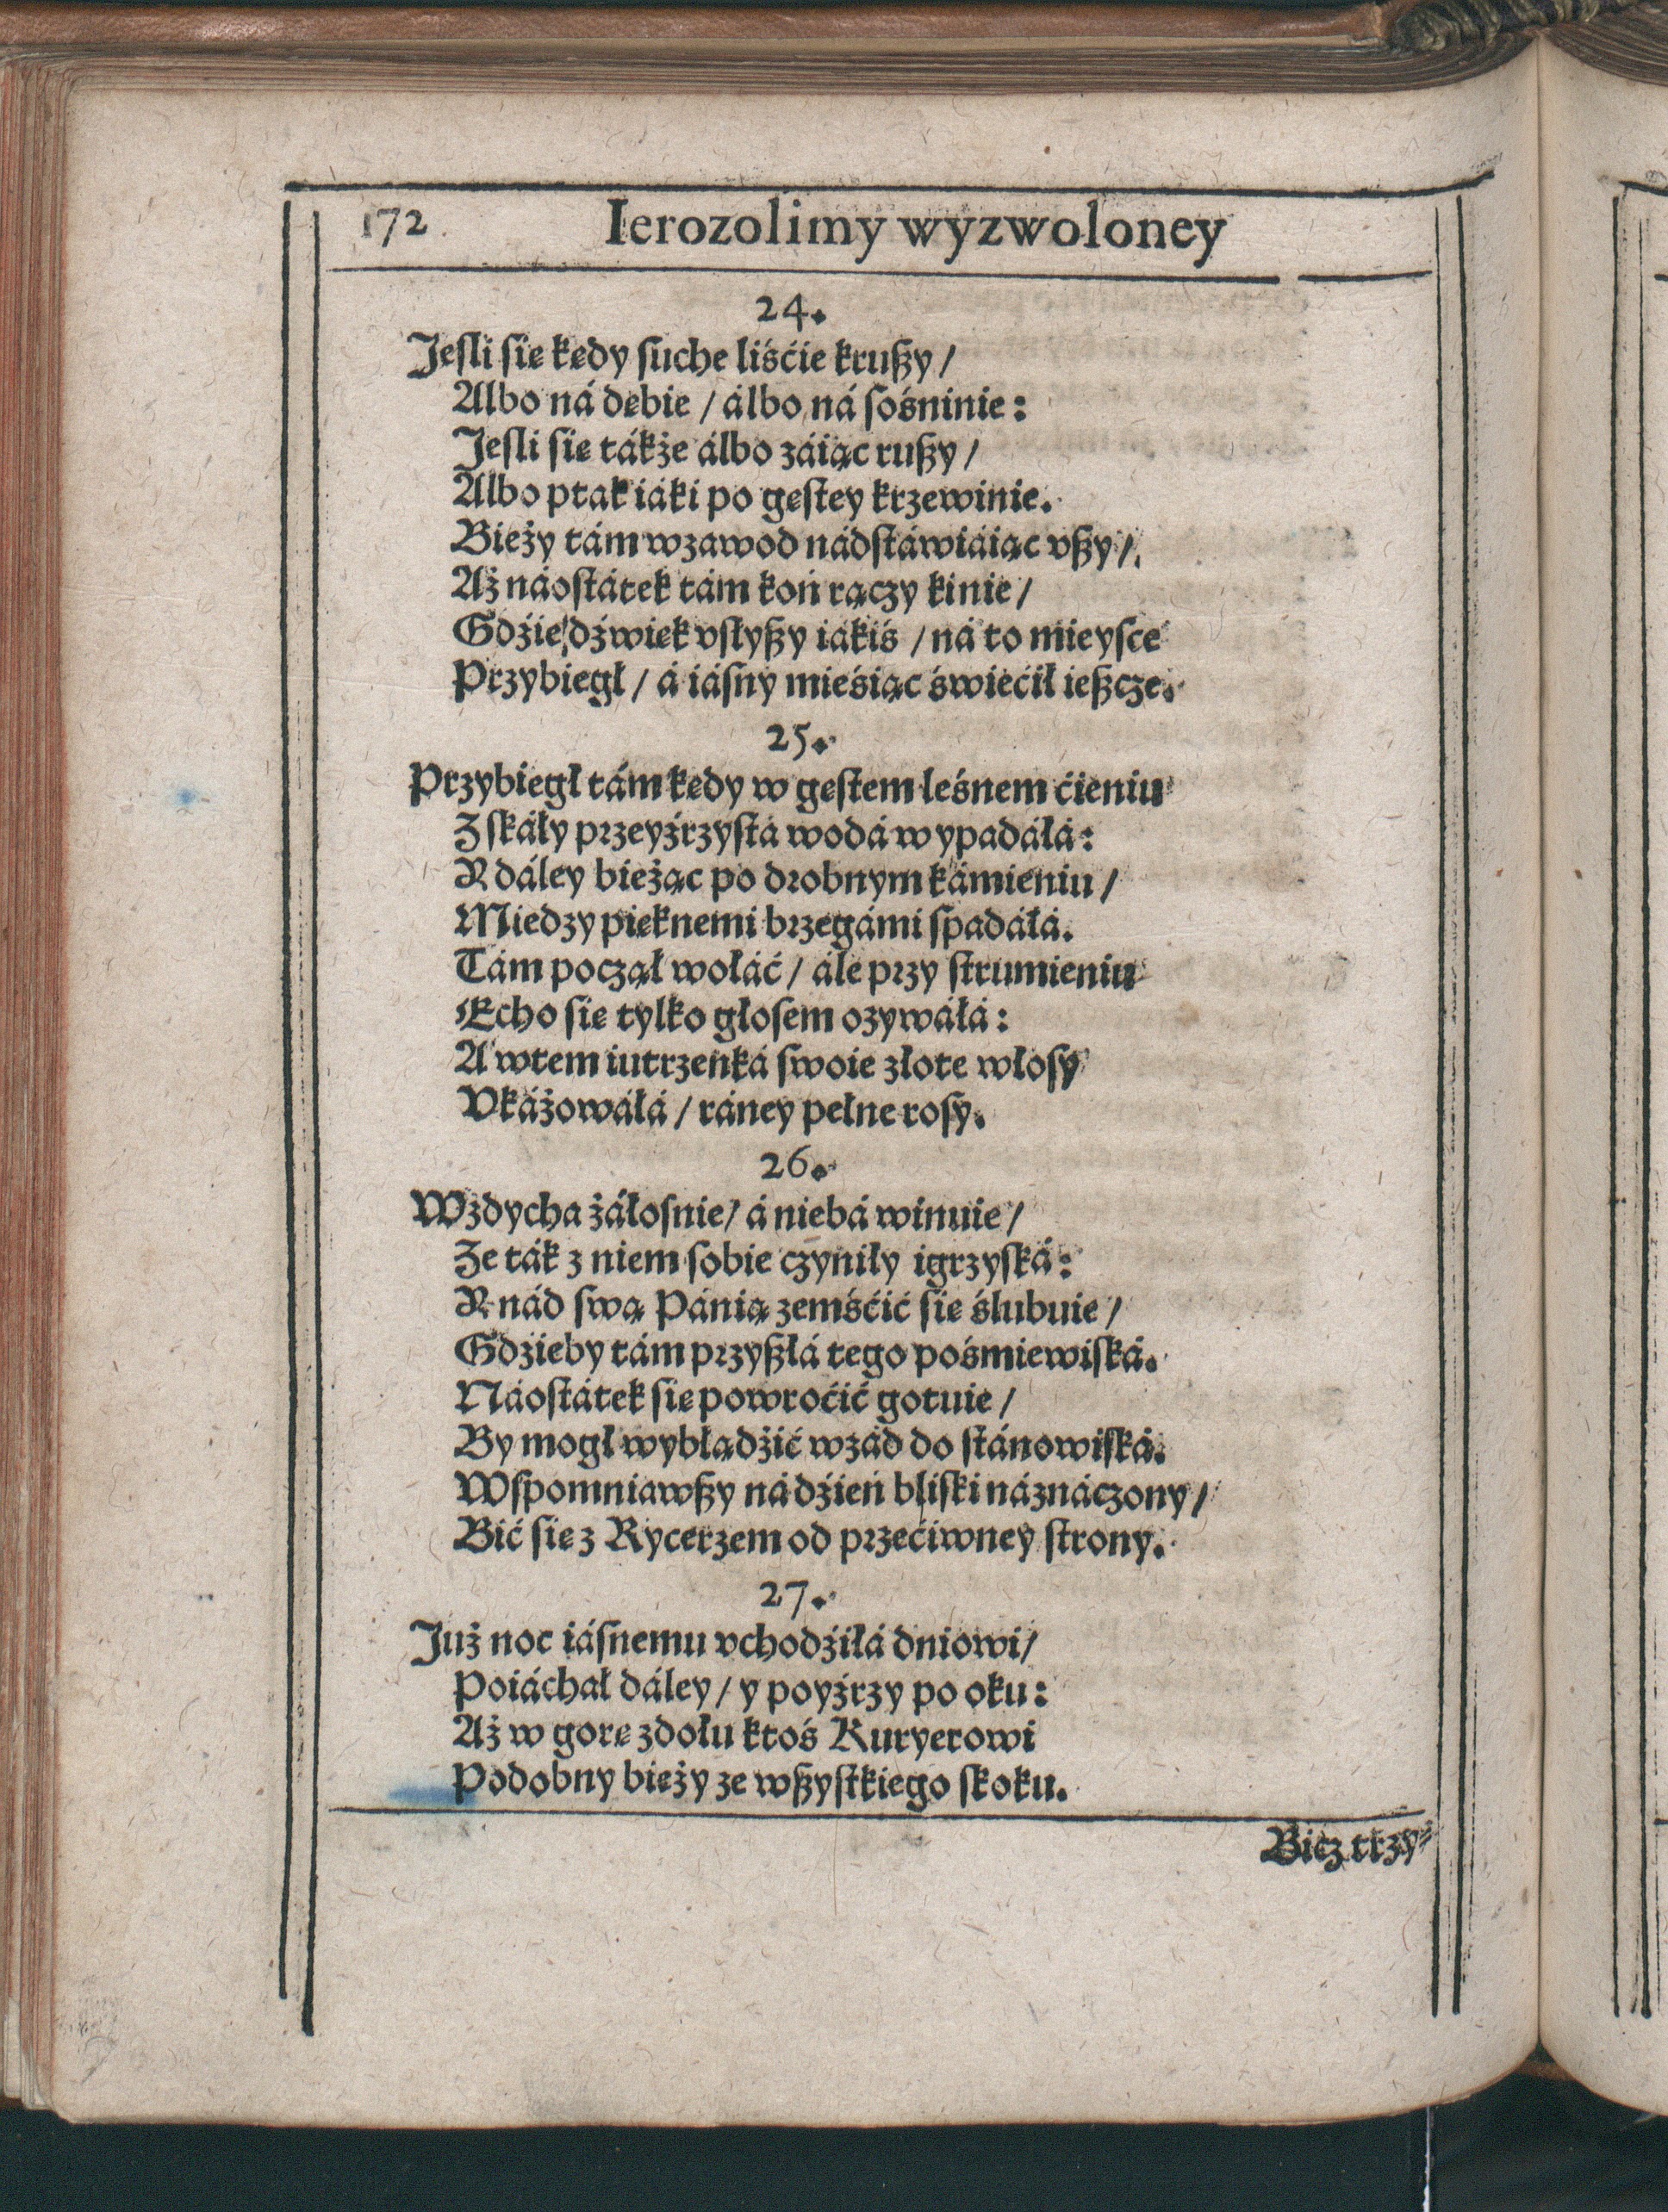 172 Ierozolimy wyzwoloney
24.
Jeſli ſię kędy ſuche liśćie krußy /
Albo ná dębie / álbo ná ſośninie:
Jeſli ſię tákże álbo záiąc rußy /
Albo ptak iáki po gęſtey krzewinie.
Bieży tám wzawod nádſtáwiáiąc vßy /
Aż náoſtátek tám koń rączy kinie /
Gdźie dźwięk vſłyßy iákiś / ná to mieyſce
Przybiegł / á iáſny mieśiąc świećił ießcze.
25.
Przybiegł tám kędy w gęſtem leśnem ćieniu
Z ſkáły przeyźrzyſta wodá wypadáłá:
A dáley bieżąc po drobnym kámieniu /
Miedzy pięknemi brzegámi ſpadáłá.
Tám począł wołáć / ále przy ſtrumieniu
Echo ſię tylko głoſem ozywáłá:
A wtem iutrzenká ſwoie złote włoſy
Vkáżowáłá / ráney pełne roſy.
26.
Wzdycha żáłoſnie / á niebá winuie /
Ze ták z niem ſobie czyniły igrzyſká:
A nád ſwą Pánią zemśćić ſię ślubuie /
Gdzieby tám przyßłá tego pośmiewiſká.
Náoſtátek ſię powroćić gotuie /
By mogł wybłądźić wzad do ſtánowiſká.
Wſpomniawßy ná dźień bliſki náznáczony /
Bić ſię z Rycerzem od przećiwney ſtrony.
27.
Już noc iáſnemu vchodźiłá dniowi /
Poiáchał dáley / y poyźrzy po oku:
Aż w gorę zdołu ktoś Kuryerowi
Podobny bieży ze wßyſtkiego ſkoku.
Bicz trzy⸗